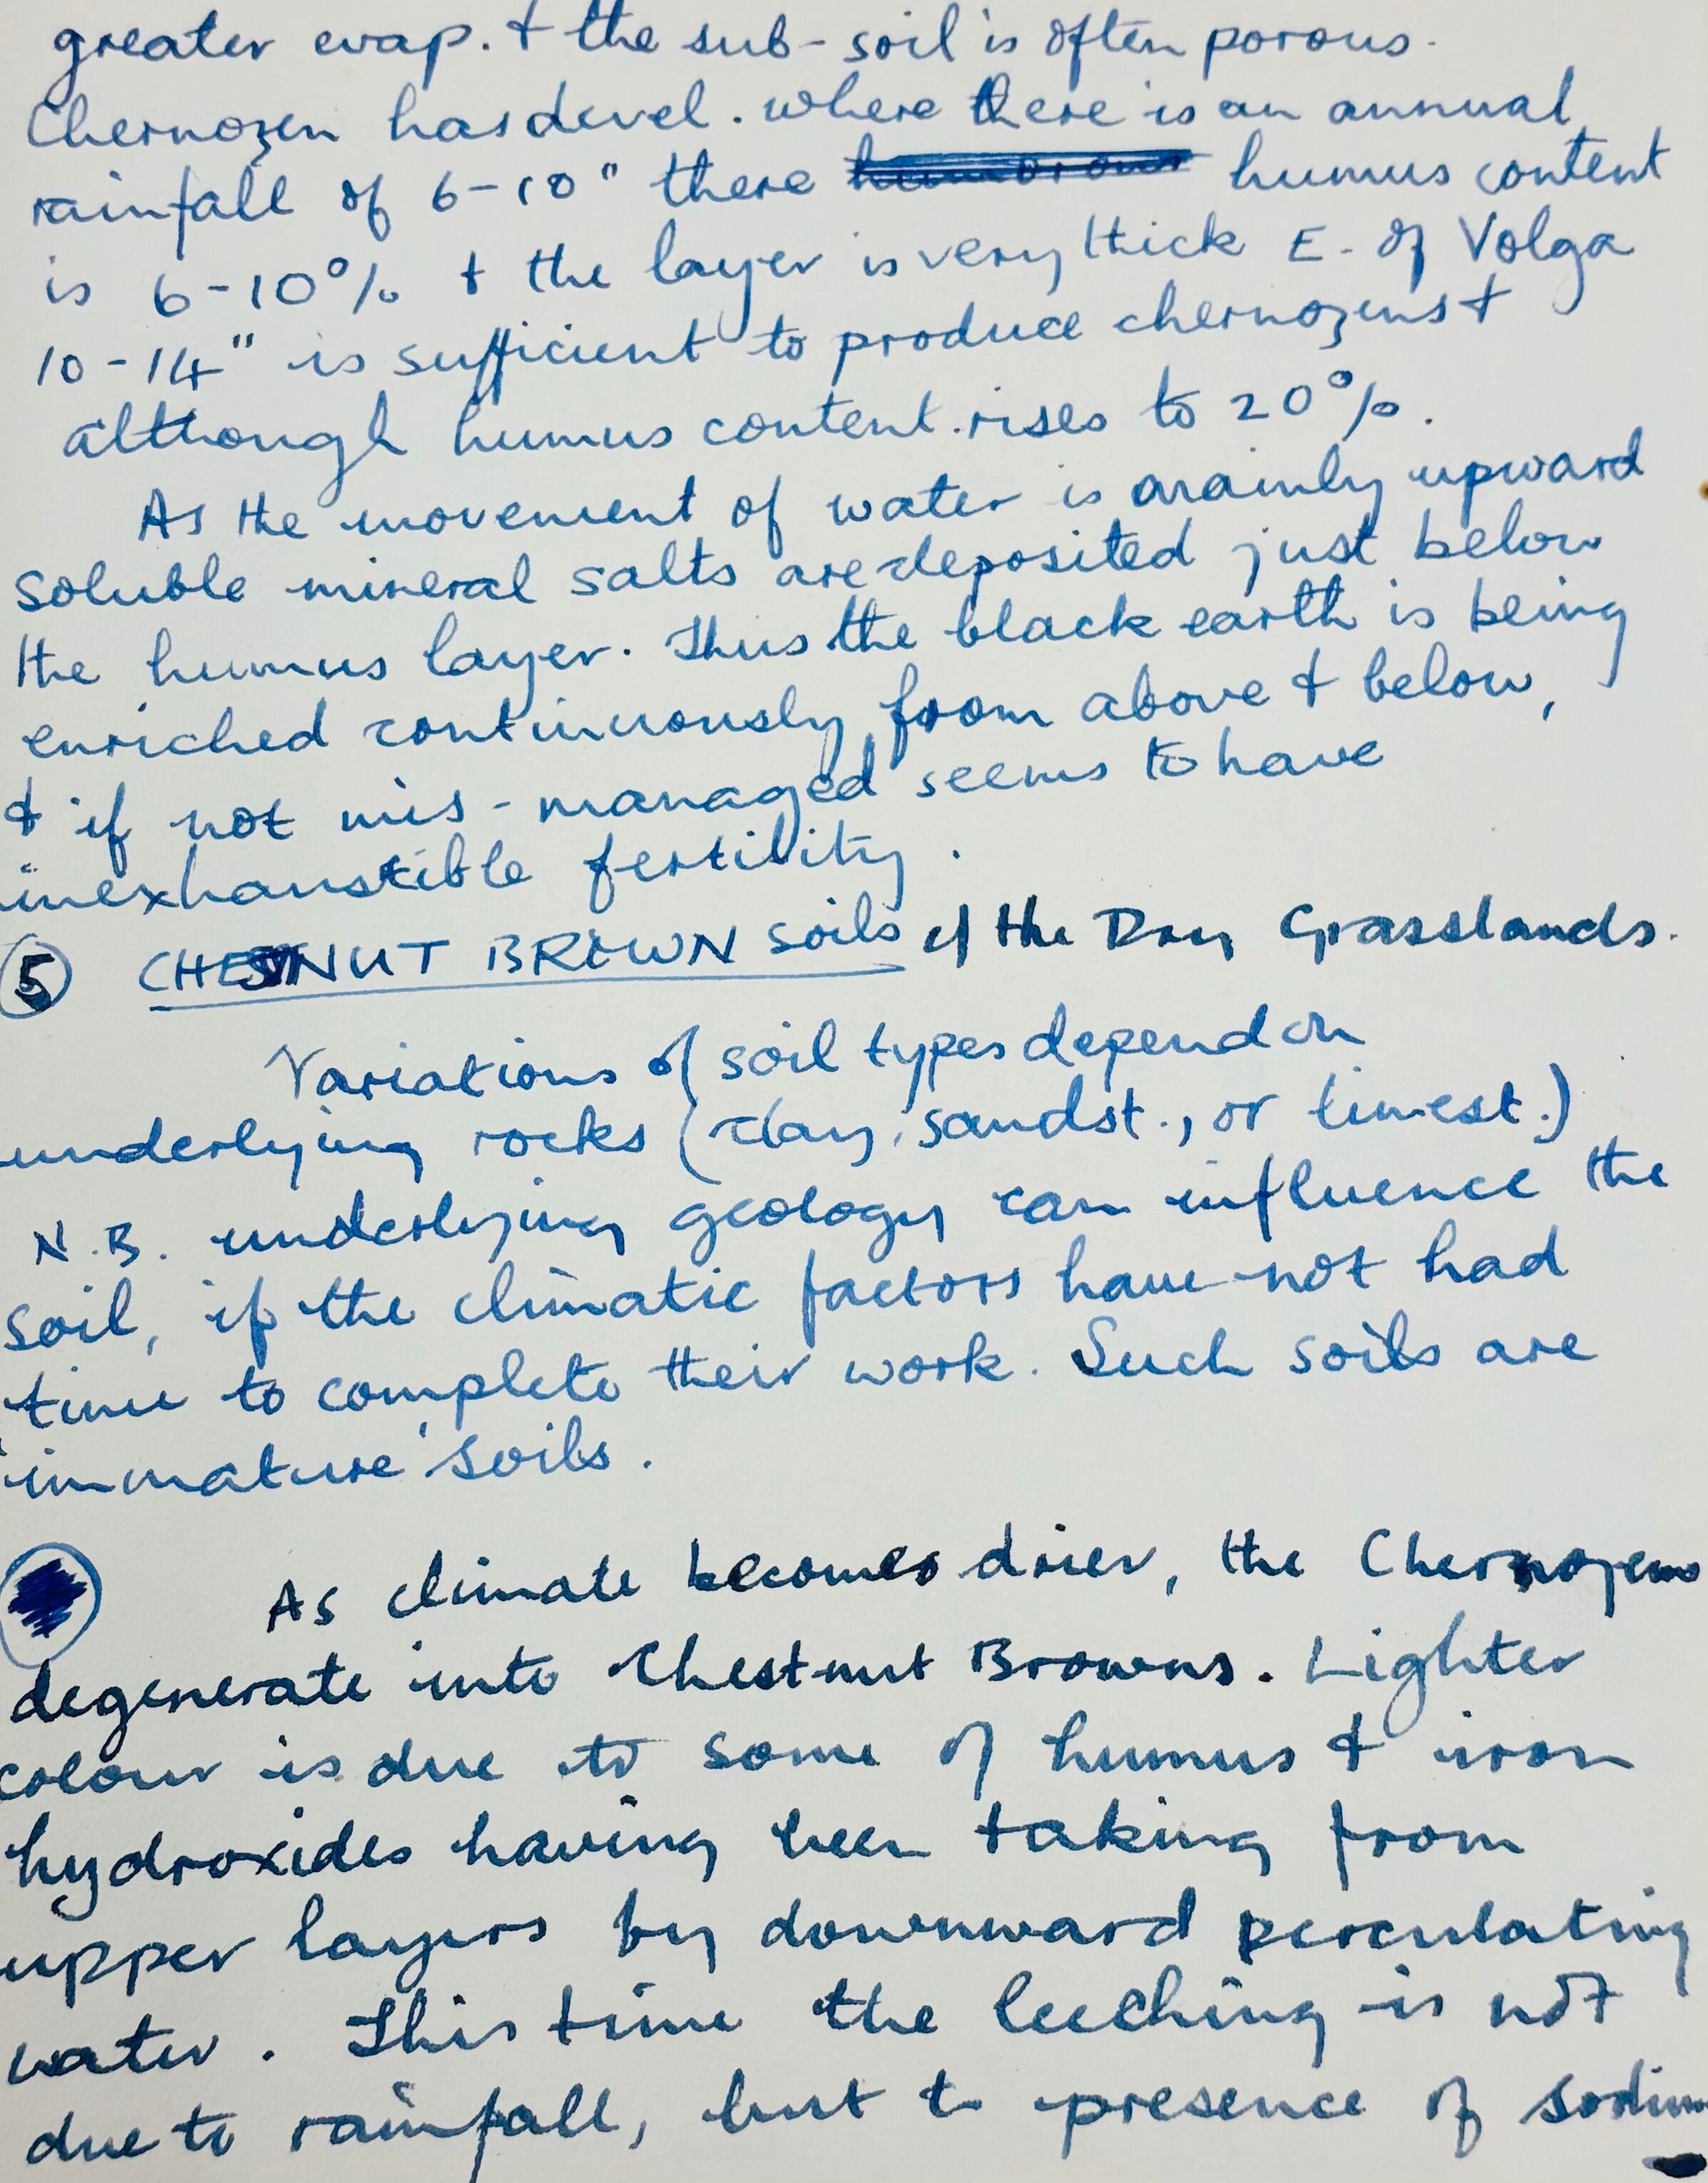 greater evap. & the sub-soil is often porous.
Chernozen has devel. where there is an annual
rainfall of 6-10" there humus content
is 6-10% & the layer is very thick E. of Volga
10-14" is sufficient to produce chernozens &
although humus content rises to 20%.
As the movement of water is mainly upward
soluble mineral salts are deposited just below
the humus layer. Thus the black earth is being
enriched continuously from above & below,
& if not mis-managed seems to have
inexhaustible fertility.
5 CHESTNUT BROWN SOILS of the Dry Grasslands.
Variations of soil types depend on
underlying rocks (clay, sandst., or limest.)
N.B. underlying geology can influence the
soil, if the climatic factors have not had
time to complete their work. Such soils are
'immature' soils.
As climate becomes drier, the Chernozems
degenerate into Chestnut Browns. Lighter
colour is due to some of humus & iron
hydroxides having been taking from
upper layers by downward perculating
water. This time the leeching is not
due to rainfall, but to presence of sodium